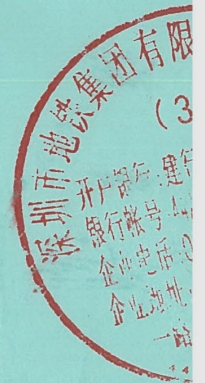 深圳市地铁集团有限
(3
开户银行:建行
银行帐号:4
企业电话:0
企业地址: